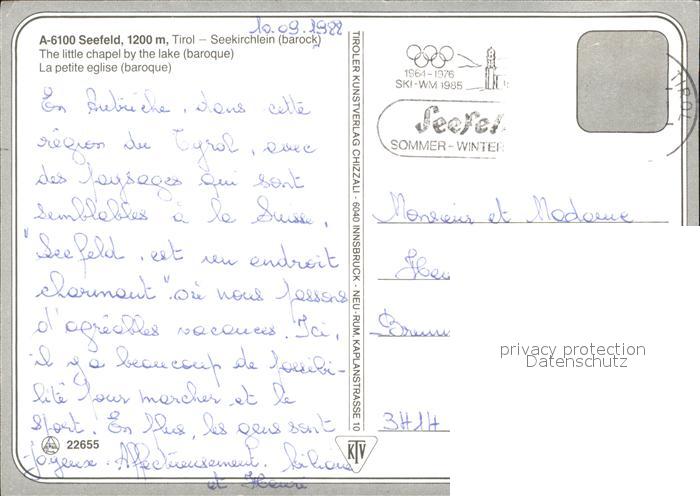 10.09.1988
A-6100 Seefeld, 1200 m, Tirol – Seekirchlein (barock)
The little chapel by the lake (baroque)
La petite eglise (baroque)
En Autriche, dans cette
région du Tyrol, avec
des paysages qui sont
semblables à la Suisse,
"Seefeld, est un endroit
charmant" où nous passons
d'agréables vacances. Ici,
il y a beaucoup de possibi-
lité pour marcher et le
sport. En plus, les gens sont
joyeux. Affectueusement. Liliane
et
22655
TIROLER KUNSTVERLAG CHIZZALI - 6040 INNSBRUCK - NEU-RUM, KAPLANSTRASSE 10
KTV
1964-1976
SKI-WM 1985
Seefel
SOMMER-WINTER
TIROL
Monsieur et Madame
3414
privacy protection
Datenschutz